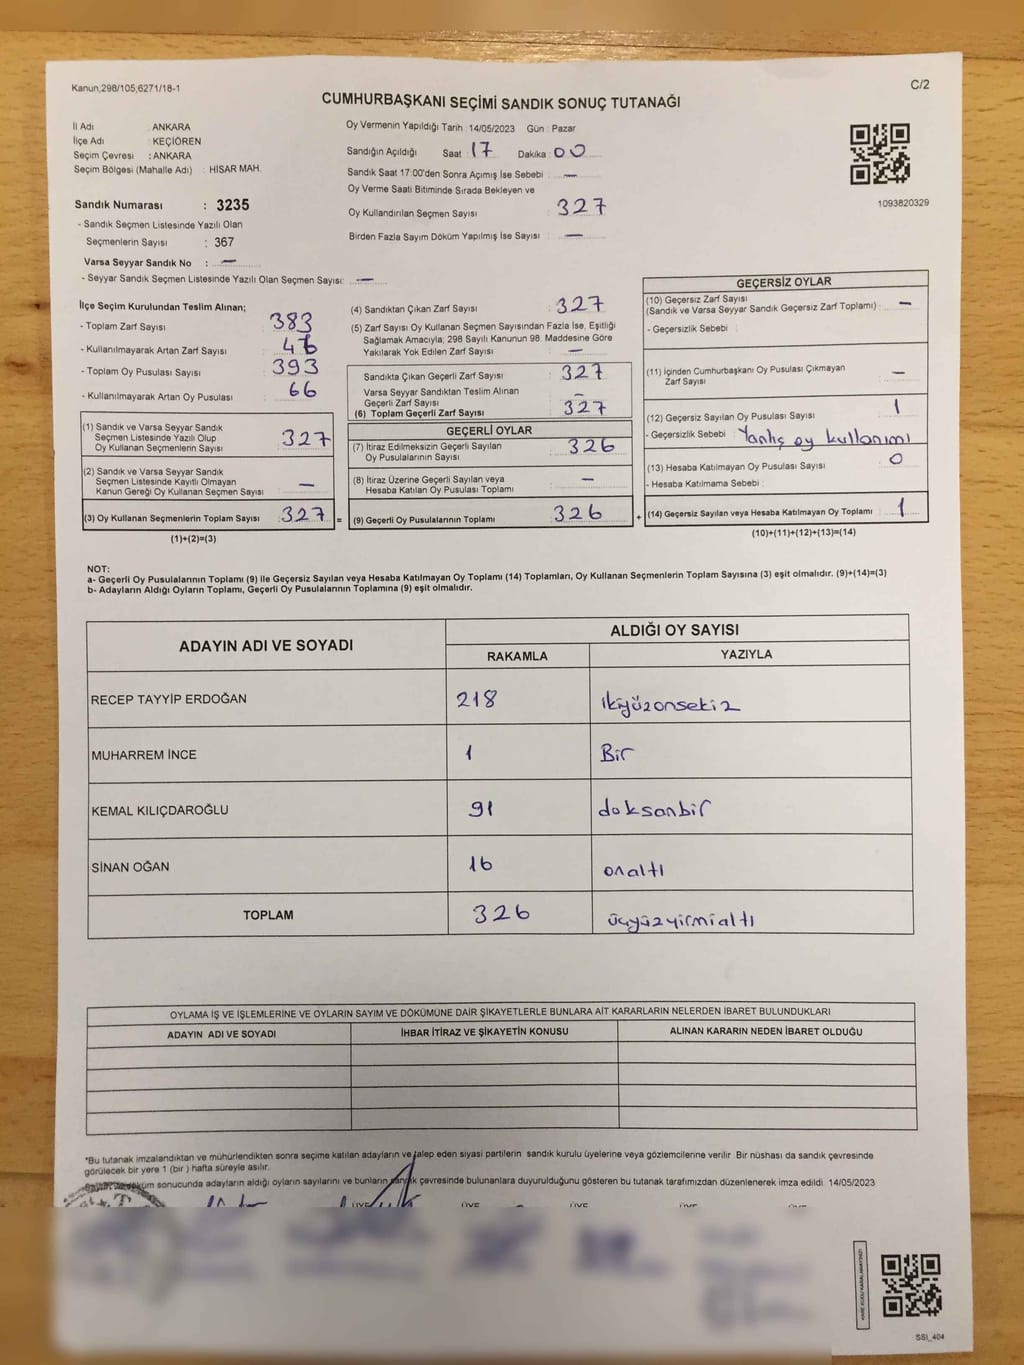 Kanun;298/105;6271/18-1
C/2
CUMHURBAŞKANI SEÇİMİ SANDIK SONUÇ TUTANAĞI
İl Adı : ANKARA
İlçe Adı : KEÇİÖREN
Seçim Çevresi : ANKARA
Seçim Bölgesi (Mahalle Adı) : HİSAR MAH.
Sandık Numarası : 3235
- Sandık Seçmen Listesinde Yazılı Olan
Seçmenlerin Sayısı : 367
Varsa Seyyar Sandık No : —
- Seyyar Sandık Seçmen Listesinde Yazılı Olan Seçmen Sayısı: —
Oy Vermenin Yapıldığı Tarih : 14/05/2023 Gün : Pazar
Sandığın Açıldığı Saat : 17 Dakika : 00
Sandık Saat 17:00'den Sonra Açımış İse Sebebi : —
Oy Verme Saati Bitiminde Sırada Bekleyen ve
Oy Kullandırılan Seçmen Sayısı : 327
Birden Fazla Sayım Döküm Yapılmış İse Sayısı : —
1093820329
İlçe Seçim Kurulundan Teslim Alınan;
- Toplam Zarf Sayısı : 383
- Kullanılmayarak Artan Zarf Sayısı
- Toplam Oy Pusulası Sayısı : 393
- Kullanılmayarak Artan Oy Pusulası : 66
(1) Sandık ve Varsa Seyyar Sandık
Seçmen Listesinde Yazılı Olup
Oy Kullanan Seçmenlerin Sayısı : 327
(2) Sandık ve Varsa Seyyar Sandık
Seçmen Listesinde Kayıtlı Olmayan
Kanun Gereği Oy Kullanan Seçmen Sayısı : —
(3) Oy Kullanan Seçmenlerin Toplam Sayısı : 327 =
(1)+(2)=(3)
(4) Sandıktan Çıkan Zarf Sayısı : 327
(5) Zarf Sayısı Oy Kullanan Seçmen Sayısından Fazla İse, Eşitliği
Sağlamak Amacıyla; 298 Sayılı Kanunun 98. Maddesine Göre
Yakılarak Yok Edilen Zarf Sayısı : —
Sandıkta Çıkan Geçerli Zarf Sayısı : 327
Varsa Seyyar Sandıktan Teslim Alınan
Geçerli Zarf Sayısı : —
(6) Toplam Geçerli Zarf Sayısı : 327
GEÇERLİ OYLAR
(7) İtiraz Edilmeksizin Geçerli Sayılan
Oy Pusulalarının Sayısı : 326
(8) İtiraz Üzerine Geçerli Sayılan veya
Hesaba Katılan Oy Pusulası Toplamı : —
(9) Geçerli Oy Pusulalarının Toplamı : 326 +
GEÇERSİZ OYLAR
(10) Geçersiz Zarf Sayısı
(Sandık ve Varsa Seyyar Sandık Geçersiz Zarf Toplamı) : —
- Geçersizlik Sebebi :
(11) İçinden Cumhurbaşkanı Oy Pusulası Çıkmayan
Zarf Sayısı : —
(12) Geçersiz Sayılan Oy Pusulası Sayısı : 1
- Geçersizlik Sebebi : Yanlış oy kullanımı
(13) Hesaba Katılmayan Oy Pusulası Sayısı : 0
- Hesaba Katılmama Sebebi :
(14) Geçersiz Sayılan veya Hesaba Katılmayan Oy Toplamı : 1
(10)+(11)+(12)+(13)=(14)
NOT:
a- Geçerli Oy Pusulalarının Toplamı (9) ile Geçersiz Sayılan veya Hesaba Katılmayan Oy Toplamı (14) Toplamları, Oy Kullanan Seçmenlerin Toplam Sayısına (3) eşit olmalıdır. (9)+(14)=(3)
b- Adayların Aldığı Oyların Toplamı, Geçerli Oy Pusulalarının Toplamına (9) eşit olmalıdır.
ADAYIN ADI VE SOYADI ALDIĞI OY SAYISI
RAKAMLA YAZIYLA
RECEP TAYYİP ERDOĞAN 218 ikiyüzonsekiz
MUHARREM İNCE 1 Bir
KEMAL KILIÇDAROĞLU 91 doksanbir
SİNAN OĞAN 16 onaltı
TOPLAM 326 üçyüzyirmialtı
OYLAMA İŞ VE İŞLEMLERİNE VE OYLARIN SAYIM VE DÖKÜMÜNE DAİR ŞİKAYETLERLE BUNLARA AİT KARARLARIN NELERDEN İBARET BULUNDUKLARI
ADAYIN ADI VE SOYADI İHBAR İTİRAZ VE ŞİKAYETİN KONUSU ALINAN KARARIN NEDEN İBARET OLDUĞU
*Bu tutanak imzalandıktan ve mühürlendikten sonra seçime katılan adayların ve talep eden siyasi partilerin sandık kurulu üyelerine veya gözlemcilerine verilir. Bir nüshası da sandık çevresinde
görülecek bir yere 1 (bir) hafta süreyle asılır.
döküm sonucunda adayların aldığı oyların sayılarını ve bunların sandık çevresinde bulunanlara duyurulduğunu gösteren bu tutanak tarafımızdan düzenlenerek imza edildi. 14/05/2023
ÜYE ÜYE ÜYE ÜYE ÜYE
SSI_404